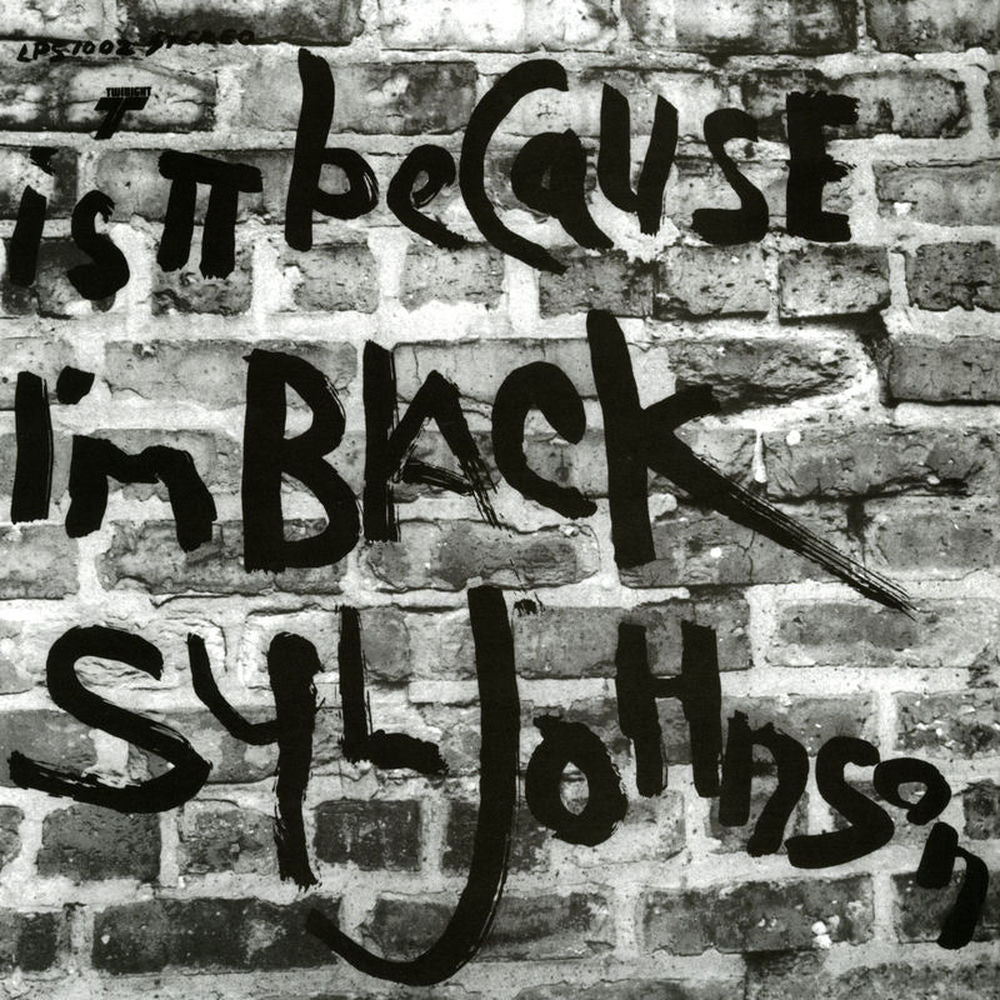 LPS1002-STEREO
TWINIGHT
is π because
I'm BACK
SYL JoHnson